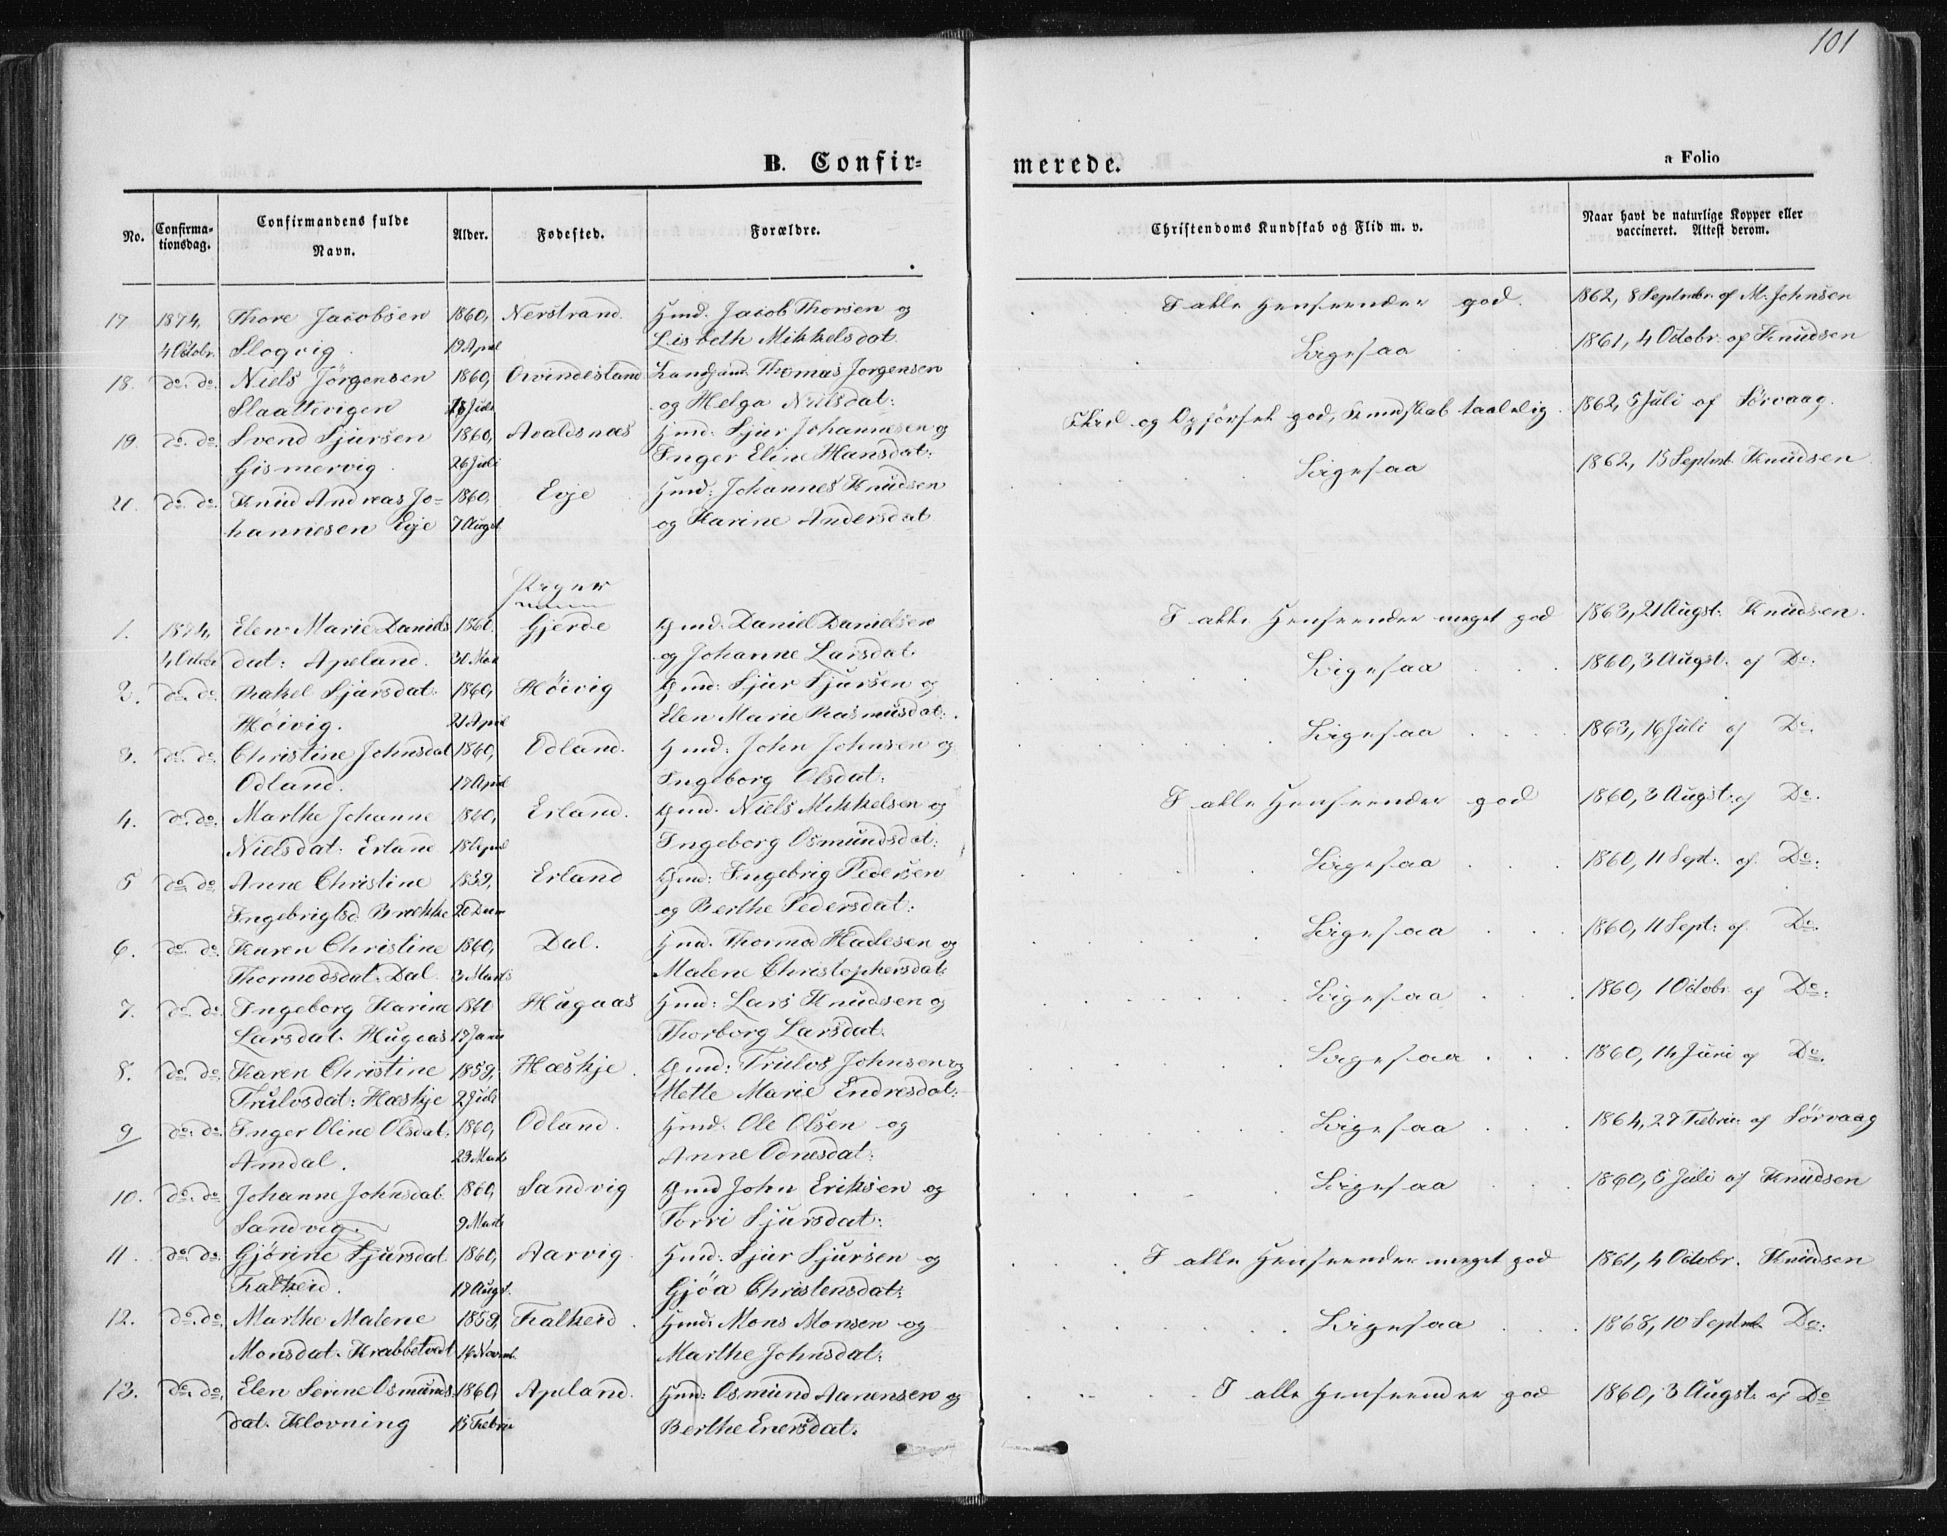 101
B. Confir=
merede.
a Folio
No.
Confirma-
tionsdag.
Confirmandens fulde
Navn.
Alder.
Fødested.
Forældre.
Christendoms Kundskab og Flid m. v.
Naar havt de naturlige Kopper eller
vaccineret. Attest derom.
17 1874, Thore Jacobsen 1860, Nerstrand. Hmd. Jacob Thorsen og I alle Henseender god. 1862, 8 Septmbr. af M. Johnsen
4 Octobr. Slogvig. 19 Apr Lisbeth Mikkelsdat.
18. do. do. Niels Jörgensen 1860, Öivindesland Thomas Jorgensen Ligesaa 1861, 4 Octobr. af Knudsen
Slaattevigen Juli og Helga Nielsdat:
19. do. do. Svend Sjursen 1860, Avaldsnæs Hmd. Sjur Johannesen og Flid og Opförsel god, Kundskab taalelig. 1862, 5 Juli af Sörvaag.
Gismervig. 26 Juli Inger Eline Hansdat:
21. do. do. Knud Andreas Jo- 1860, Eije Hmd: Johannes Knudsen Ligesaa 1862, 15 Septmbr. Knudsen
hannesen Eije 7 Augst og Karine Andersdat
Piger
1. 1874, Elen Marie Daniels 1860. Gjerde Gmd. Daniel Danielsen I alle Henseender meget god 1863, 21 Augst. Knudsen.
4 Octobr dat: Apeland. 30 og Johanne Larsdat.
2. do. do. Rakel Sjursdat. 1860, Höivig Gmd: Sjur Sjursen og Ligesaa 1860, 3 Augst. af Do:
Höivig. 21 April Elen Marie Rasmusdat:
3. do. do. Christine Johnsdat 1860, Odland. Hmd: John Johnsen og Ligesaa 1863, 16 Juli af Do:
Odland. 17 April Ingeborg Olsdat:
4. do. do. Marthe Johanne 1860, Erland. Gmd. Niels Mikkelsen og I alle Henseender god 1860, 3 Augst: af Do.
Nielsdat. Erland 18 April Ingeborg Osmundsdat:
5 do. do. Anne Christine 1859, Erland Gmd: Ingebrig Pedersen Ligesaa 1860, 11 Sept: af Do:
Ingebrigtsd Brekke 20 Decm og Berthe Pedersdat:
6. do. do. Karen Christine 1860, Dal. Hmd. Thormod og Ligesaa 1860, 11 Sept: af Do:
Thormodsdat. Dal. 3 Marts Malene Christophersdat:
7. do. do. Ingeborg Karine 1860 Hugaas Hmd: Lars Knudsen og Ligesaa 1860, 1 Octobr af Do:
Larsdat. Hugaas 17 Janu Thorborg Larsdat:
8. do. do. Karen Christine 1859, Hæskje. Gmd: Trulvs Johnsen og Ligesaa 1860, 14 Juni af Do:
Trulvsdat: Hæskje 2 Juli Mette Marie Endresdat:
9 do. do. Inger Oline Olsdat. 1860, Odland. Hmd. Ole Olsen og Ligesaa 1864, 27 Februa: af Sörvaag
Amdal. 23 Marts Anne Odnesdat:
10. do. do. Johanne Johnsdat. 1860, Sandvig Gmd John Eriksen og Ligesaa 1860, 5 Juli af Knudsen
Sandvig. 9 Marts Torri Sjursdat:
11. do. do. Gjörine Sjursdat 1860, Aarvig. Hmd: Sjur Sjursen og I alle Henseender meget god 1861, 4 Octobr. Knudsen
Falkeid. 17 Augst. Gjöa Christensdat:
12. do. do. Marthe Malene 1859, Falkeid. Hmd: Mons Monsen og Ligesaa 1868, 10 Septmbr. Do:
Monsdat. Krabbetvedt 14 Novmb. Marthe Johnsdat:
13. do. do. Elen Serine Osmunds 1860, Apeland. Hmd: Osmund Aanensen og I alle Henseender god 1860, 3 Augst. af Do
dat. Klovning 15 Februa Berthe Enersdat.